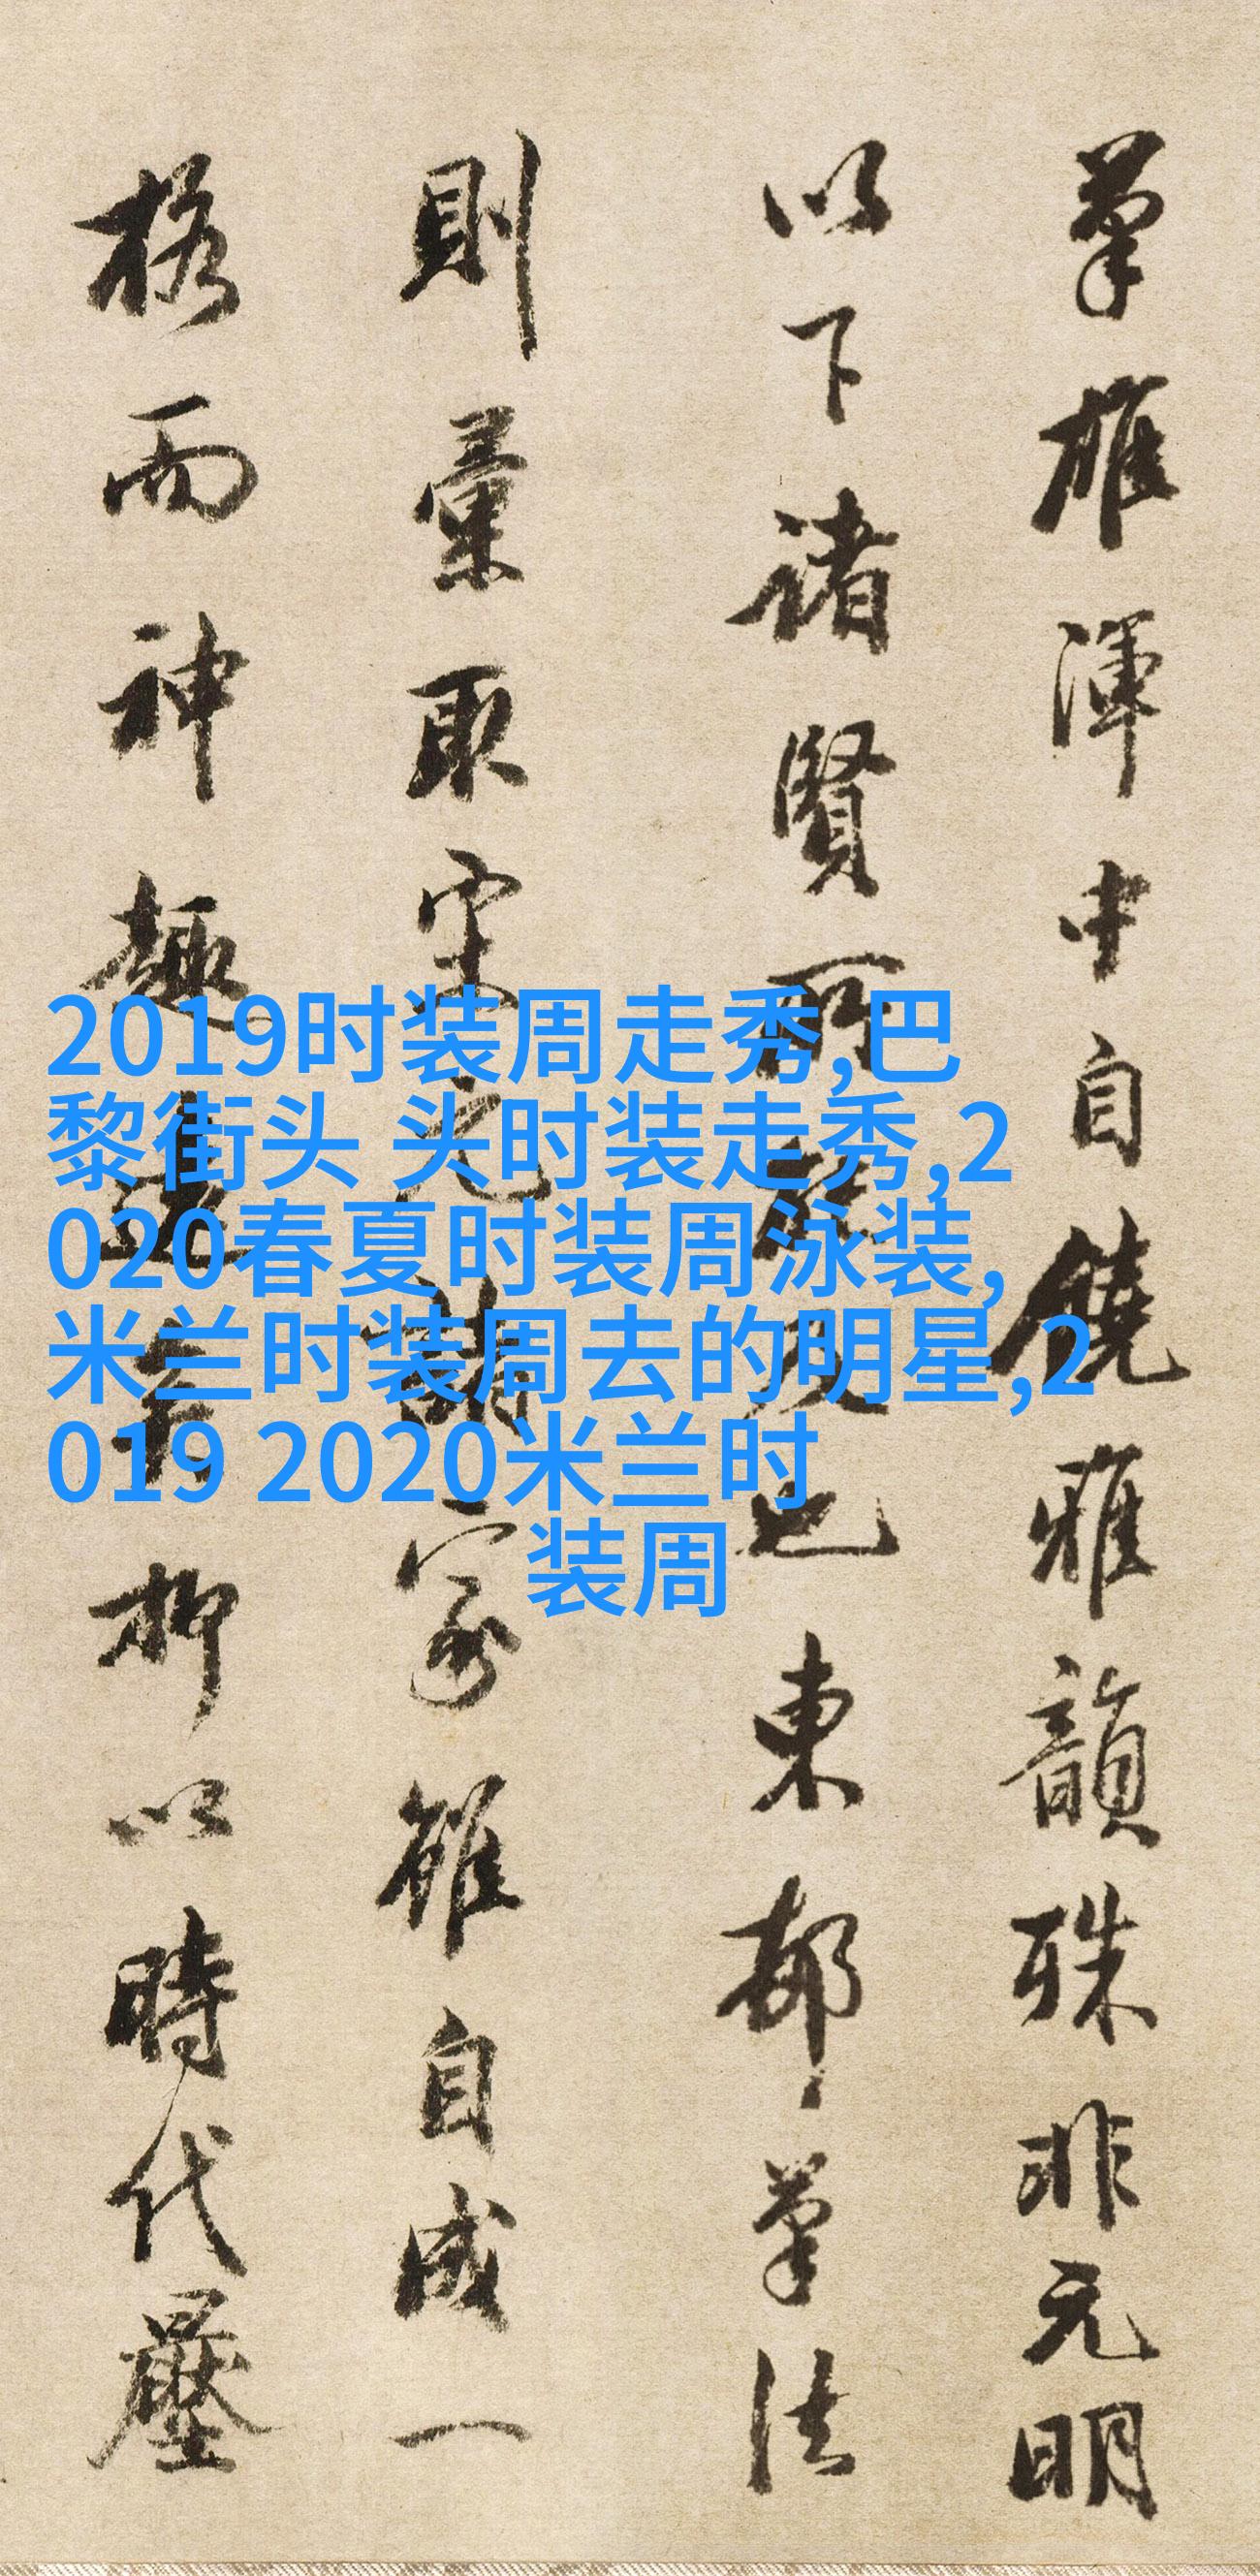 筆雄渾中自饒雅韻殊非元明
以下諸賢所能及也東邨筆法
則彙取宋元諸家雖自成一
格而神趣抑以時代壓
2019时装周走秀,巴
黎街头 头时装走秀,2
020春夏时装周泳装,
米兰时装周去的明星,2
019 2020米兰时
装周